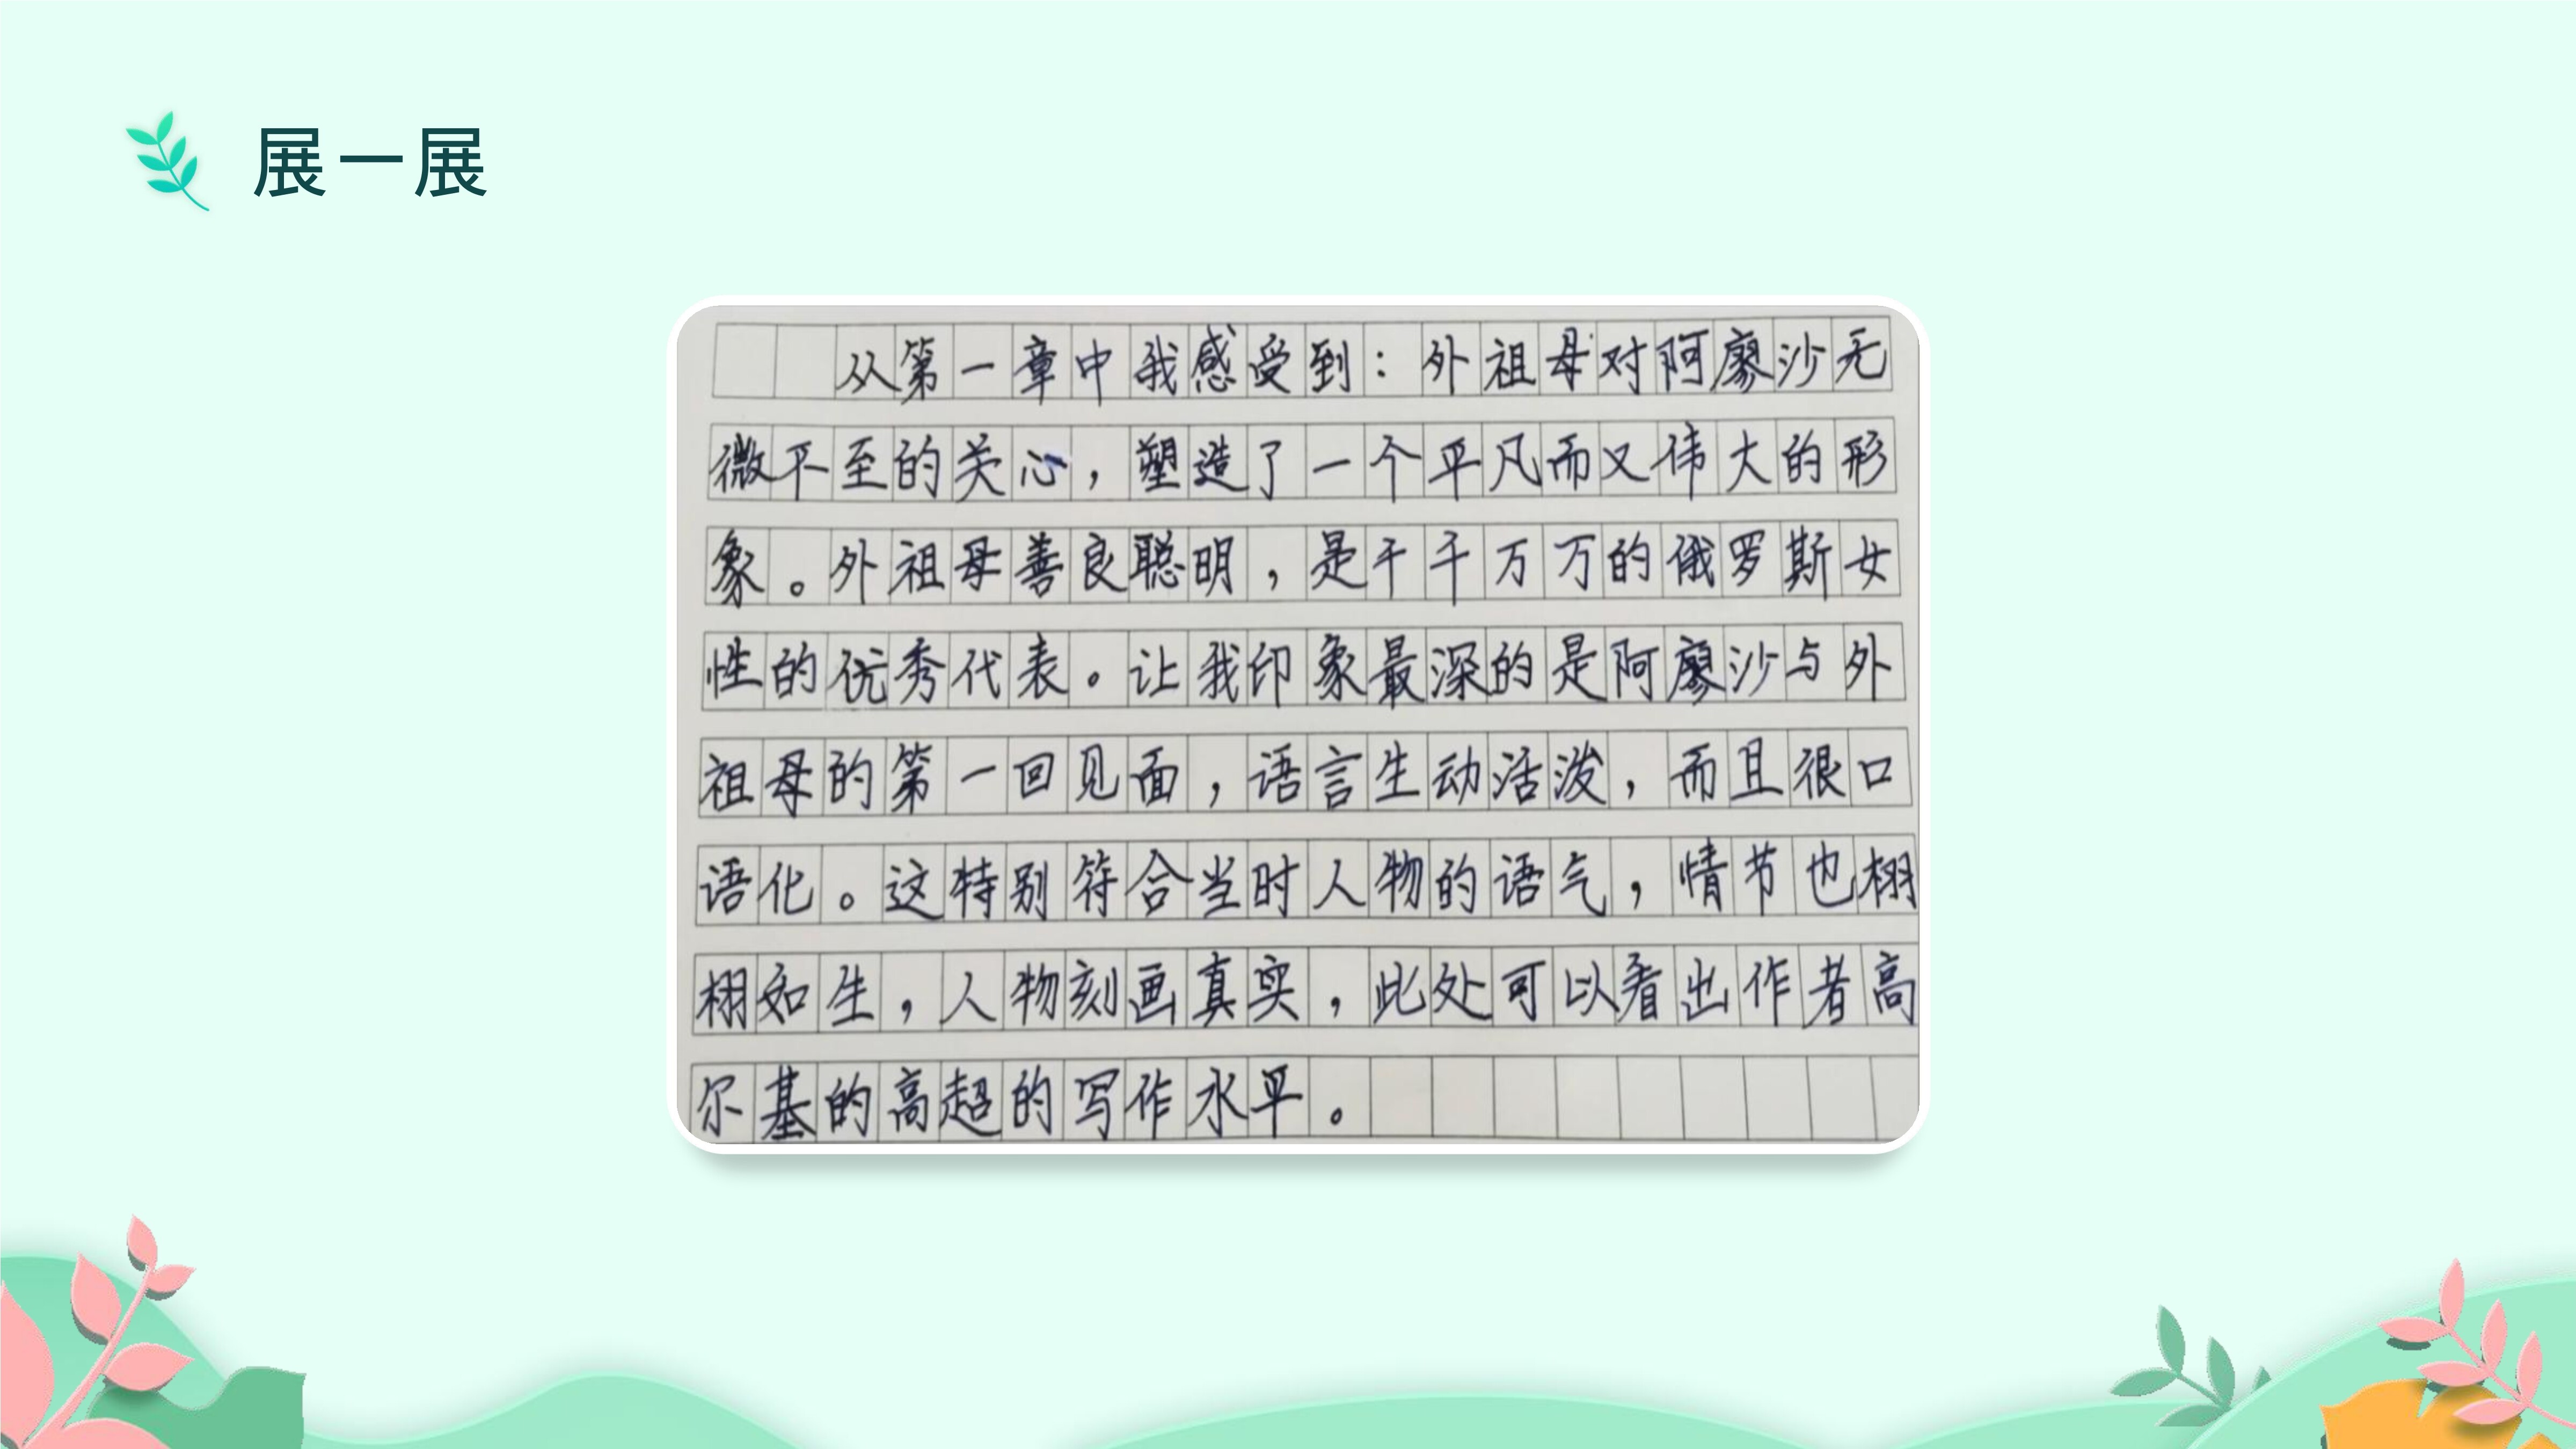 展一展
从第一章中我感受到：外祖母对阿廖沙无
微不至的关心，塑造了一个平凡而又伟大的形
象。外祖母善良聪明，是千千万万的俄罗斯女
性的优秀代表。让我印象最深的是阿廖沙与外
祖母的第一回见面，语言生动活泼，而且很口
语化。这特别符合当时人物的语气，情节也栩
栩如生，人物刻画真实，此处可以看出作者高
尔基的高超的写作水平。